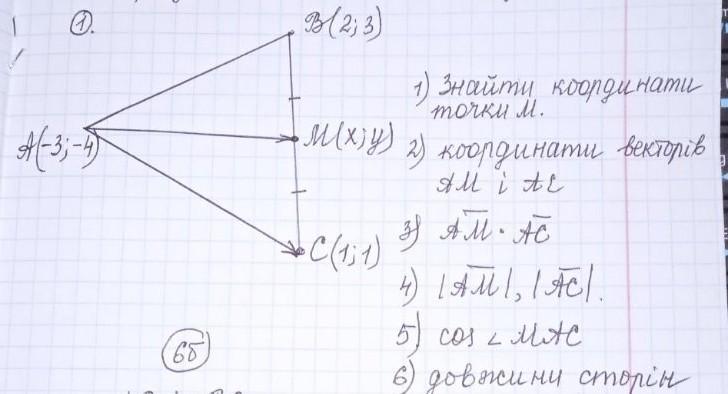 ①.
B(2; 3)
A(-3; -4)
M(x; y)
C(1; 1)
6б
1) Знайти координати
точки M.
2) координати векторів
AM і AC
3) AM · AC
4) |AM|, |AC|.
5) cos ∠ MAC
6) довжини сторін